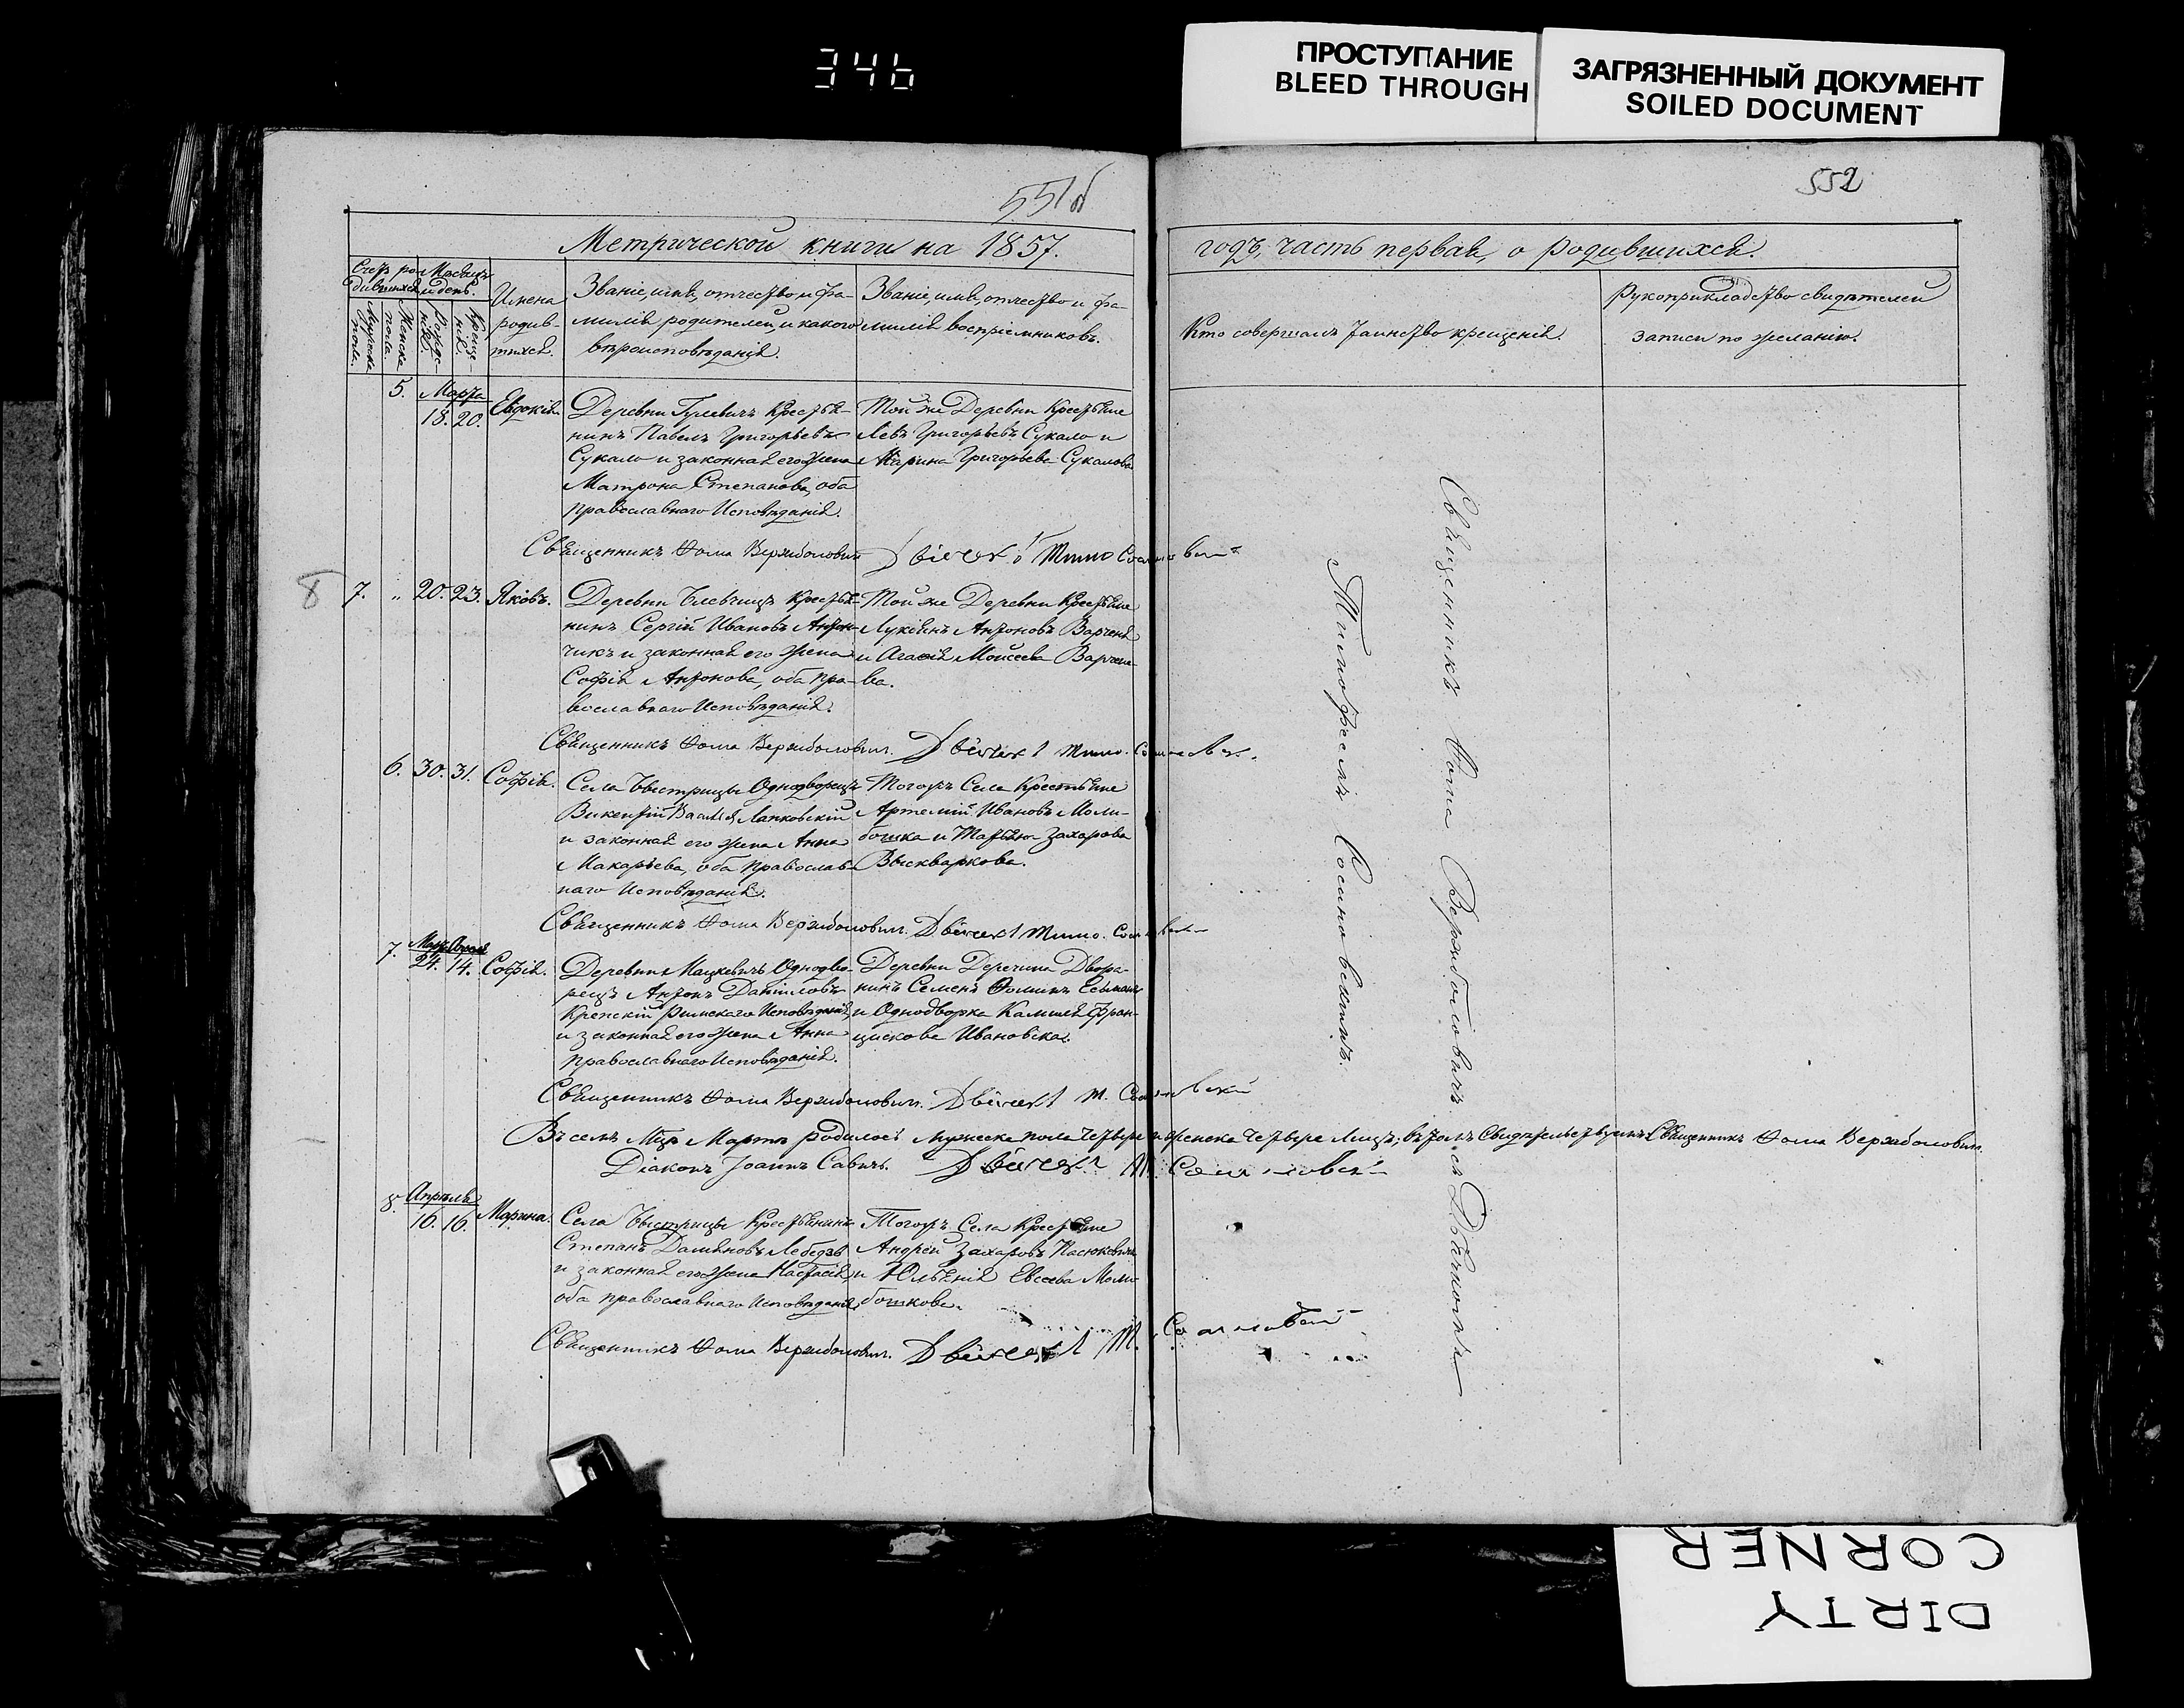 346
ПРОСТУПАНИЕ
BLEED THROUGH
ЗАГРЯЗНЕННЫЙ ДОКУМЕНТ
SOILED DOCUMENT
551б
552
Метрической книги на 1857.
годъ, часть первая, о родившихся.
Счетъ родившихся
Мѣсяцъ и день.
Мужеска пола.
Женска пола.
Рожденія.
Крещенія.
Имена
родив-
шихся.
Званіе, имя, отчество и фа-
милія родителей, и какого
вѣроисповѣданія.
Званіе, имя, отчество и фа-
милія воспріемниковъ.
Кто совершалъ таинство крещенія.
Рукоприкладство свидѣтелей
записи по желанію.
5.
Марта
18. 20.
Евдокія
Деревни Гулевичъ Крестья-
нинъ Павелъ Григорьевъ
Сукало и законная его жена
Матрона Степанова, оба
православнаго Исповѣданія.
Той же Деревни Крестьяне
Левъ Григорьевъ Сукало и
Марина Григорьева Сукалова
Священникъ Фома Вержболовичъ
8
7. „ 20. 23. Яковъ.
Деревни Блевчицъ Крестья-
нинъ Сергій Ивановъ Антон-
чикъ и законная его жена
Софія Антонова, оба пра-
вославнаго Исповѣданія.
Той же Деревни Крестьяне
Лукіянъ Антоновъ Варченя
и Агафія Моисеева Варчене-
ва.
Священникъ Фома Вержболовичъ.
6. 30. 31. Софія.
Села Быстрицы Однодворецъ
Викентій Лапковскій
и законная его жена Анна
Макарьева, оба Православ-
наго Исповѣданія.
Тогожъ Села Крестьяне
Артемій Ивановъ Моли-
бошка и Татьяна Захарова
Выскваркова.
Священникъ Фома Вержболовичъ.
7.
Март. Апреля
24. 14. Софія.
Деревни Мацкевичъ Однодво-
рецъ Антонъ Даниловъ
Крепскій Римскаго Исповѣданія,
и законная его жена Анна
православнаго Исповѣданія.
Деревни Деречина Дворя-
нинъ Семенъ Фоминъ
и Однодворка Камилія Фран-
цискова Ивановска.
Священникъ Фома Вержболовичъ.
Въ семъ Мцѣ Мартѣ родилось Мужеска пола четверо и женска четверо Лицъ; въ томъ свидѣтельствуемъ: Священникъ Фома Вержболовичъ.
Діаконъ Іоаннъ Савичъ.
8.
Апрѣля
16. 16. Марина.
Села Быстрицы Крестьянинъ
Степанъ Даміяновъ Лебедзь
и законная его жена Настасія,
оба православнаго Исповѣданія,
Тогожъ Села Крестьяне
Андрей Захаровъ Касюкевичъ
и Юльянія Евсеева Моли-
бошкова.
Священникъ Фома Вержболовичъ.
Священникъ Фома Вержболовичъ съ Дьячкомъ
Тимофеемъ Сосиновскимъ.
DIRTY
CORNER